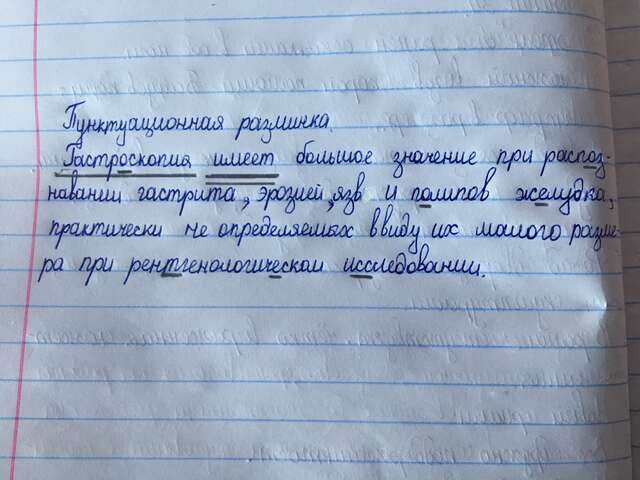 Пунктуационная разминка
Гастроскопия имеет большое значение при распоз-
навании гастрита, эрозией, язв и полипов желудка,
практически не определяемых ввиду их малого разме-
ра при рентгенологическом исследовании.